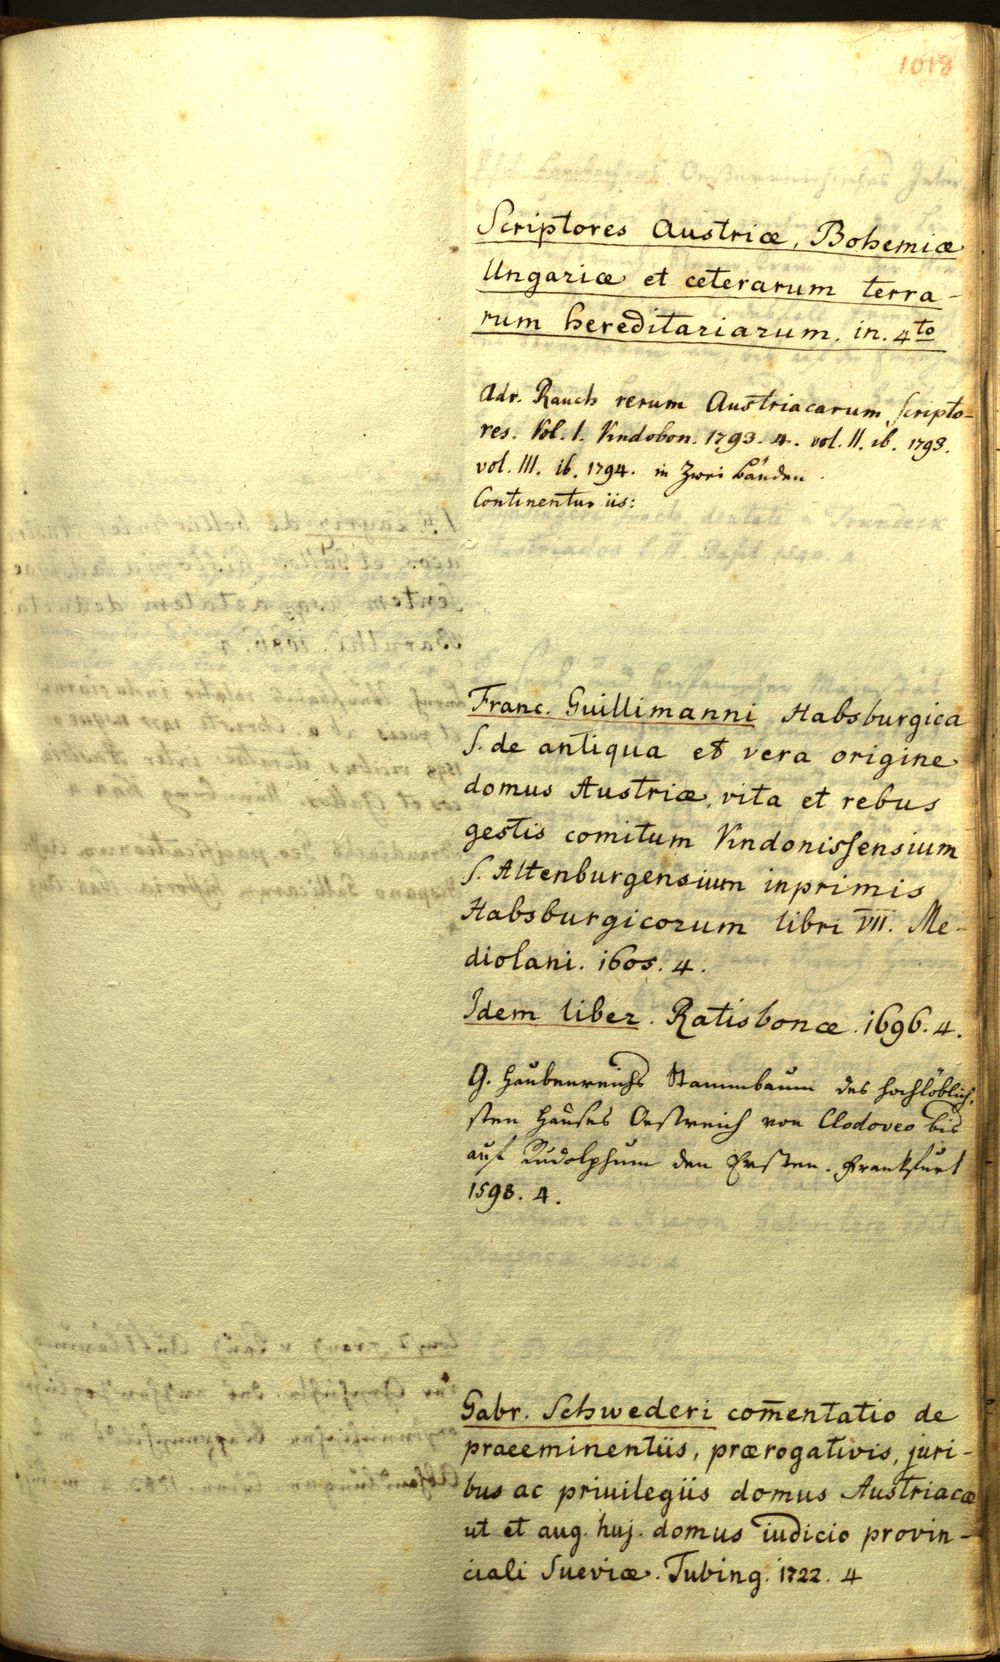 1018
Scriptores Austriæ, Bohemiæ
Ungariæ et ceterarum terra-
rum hereditariarum. in. 4to
Adr. Rauch rerum Austriacarum scripto-
res. Vol. I. Vindobon. 1793. 4. vol. II. ib. 1793.
vol. III. ib. 1794. in zwei Bänden.
Continentur iis:
Franc. Guillimanni Habsburgica
S. de antiqua et vera origine
domus Austriæ, vita et rebus
gestis comitum Vindonissensium
S. Altenburgensium inprimis
Habsburgicorum libri VII. Me-
diolani. 1605. 4.
Idem liber. Ratisbonæ. 1696. 4.
G. Haubenreichs Stammbaum des hochlöblich-
sten Hauses Oestreich von Clodoveo bis
auf Rudolphum den Ersten. Frankfurt
1598. 4.
Gabr. Schwederi com̄entatio de
praeeminentiis, prærogativis, juri-
bus ac priuilegiis domus Austriacæ
ut et aug. huj. domus iudicio provin-
ciali Sueviæ. Tubing. 1722. 4